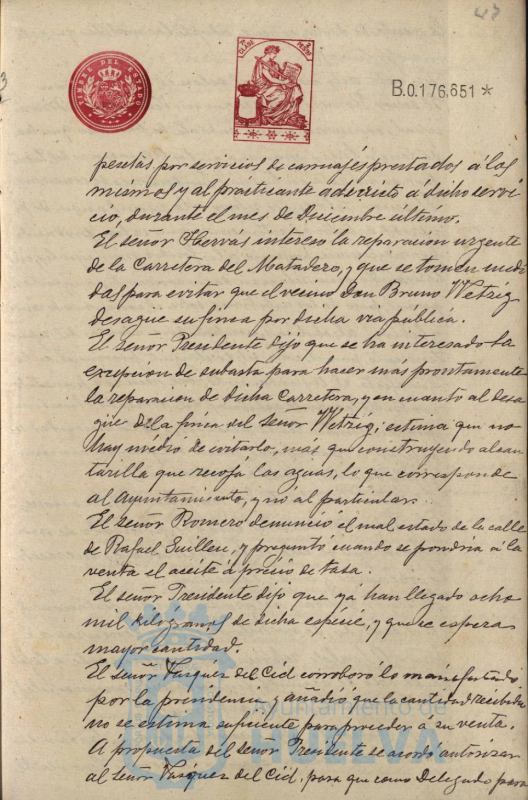 47
TIMBRE DEL ESTADO
7ª CLASE
B.0.176.651*
pesetas por servicios de carruajes prestados á los
mismos y al practicante adscrito á dicho servi
cio, durante el mes de Diciembre último.
El señor Hervás interesó la reparacion urgente
de la Carretera del Matadero, y que se tomen medi
das para evitar que el vecino Don Bruno Wetzig
desagüe su finca por dicha via pública.
El señor Presidente dijo que se ha interesado la
excepcion de subasta para hacer más prontamente
la reparacion de dicha Carretera, y en cuanto al desa
güe de la finca del señor Wetzig, estima que no
hay medio de evitarlo, más que construyendo alcan
tarilla que recoja las aguas, lo que corresponde
al Ayuntamiento, y no al particular.
El señor Romero denunció el mal estado de la calle
de Rafael Guillen, y preguntó cuando se pondria á la
venta el aceite á precio de tasa.
El señor Presidente dijo que ya han llegado ocho
mil kilógramos de dicha espécie, y que se espera
mayor cantidad.
El señor Vazquez del Cid corroboró lo manifestado
por la presidencia, y añadió que la cantidad recibida
no se estima suficiente para proceder á su venta.
A propuesta del señor Presidente se acordó autorizar
al señor Vazquez del Cid, para que como Delegado para
Ayuntamiento de
HUELVA